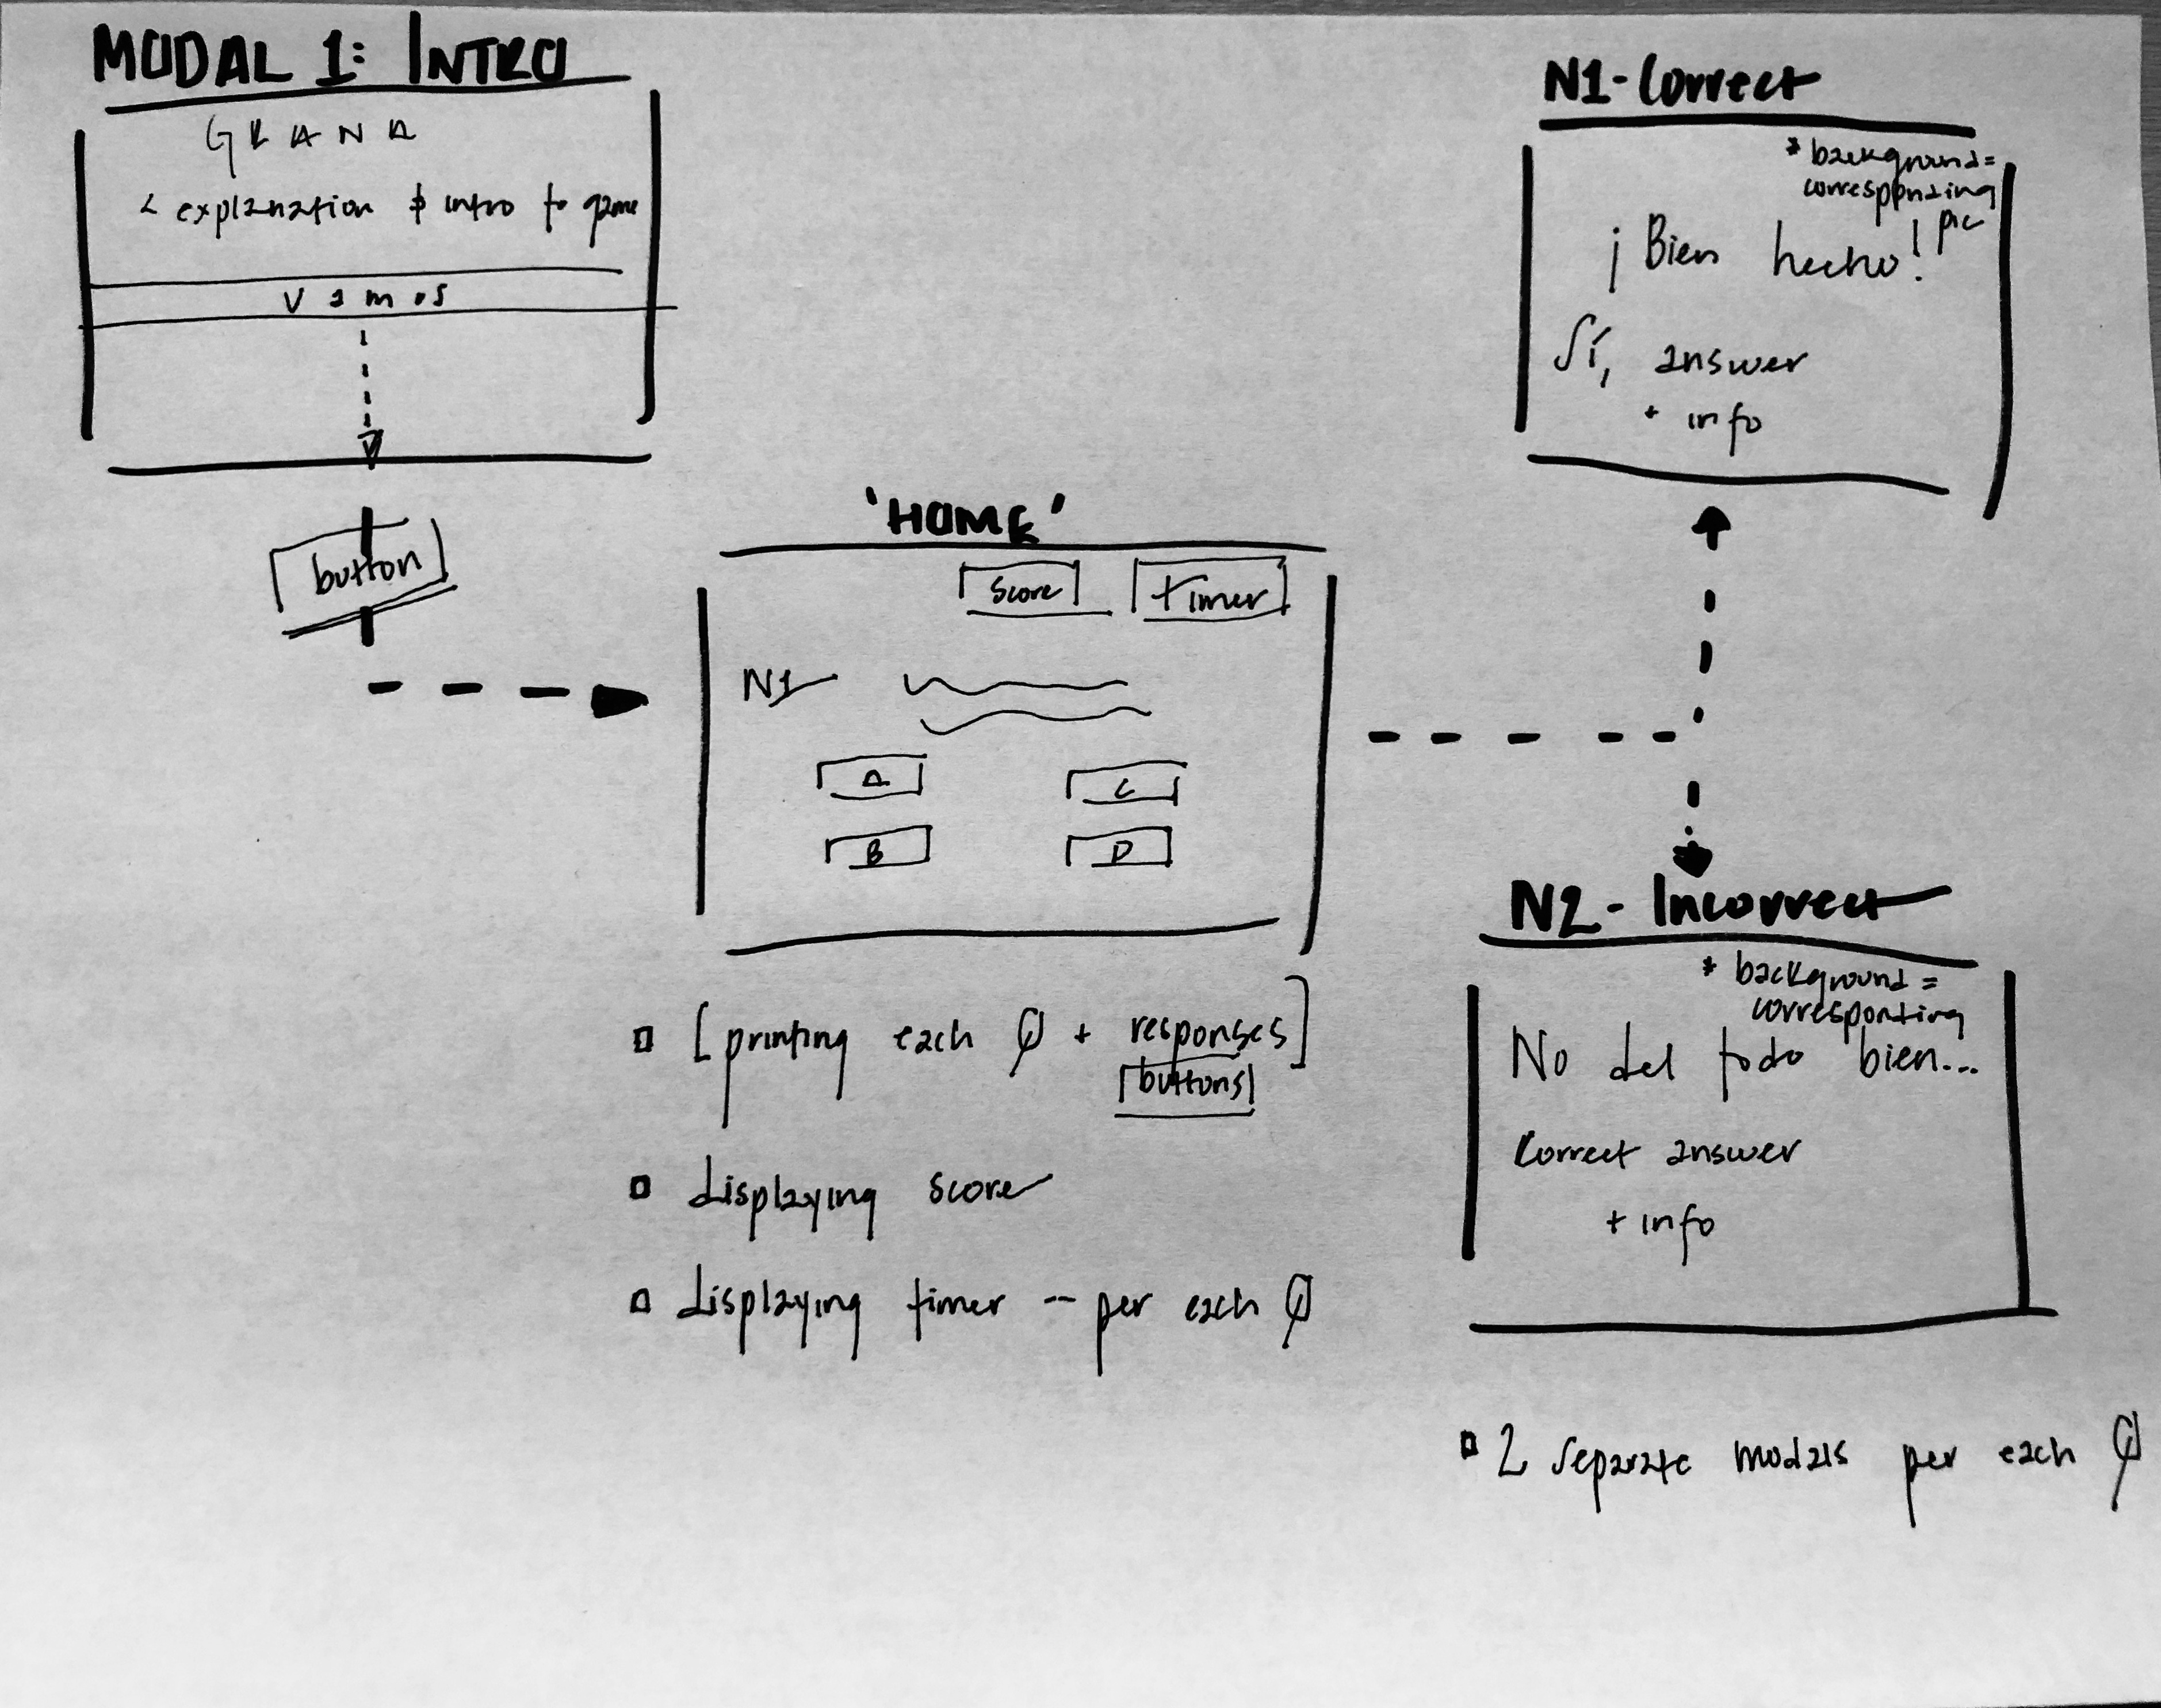 MODAL 1: INTRO
GRANA
explanation & intro to game
Vamos
button
'HOME'
Score
timer
N1
A
C
B
D
[printing each Q + responses]
buttons
displaying score
displaying timer -- per each Q
N1-Correct
* background =
corresponding
pic
¡Bien hecho!
Sí, answer
+ info
N2 - Incorrect
* background =
corresponding
No del todo bien...
Correct answer
+ info
2 separate modals per each Q